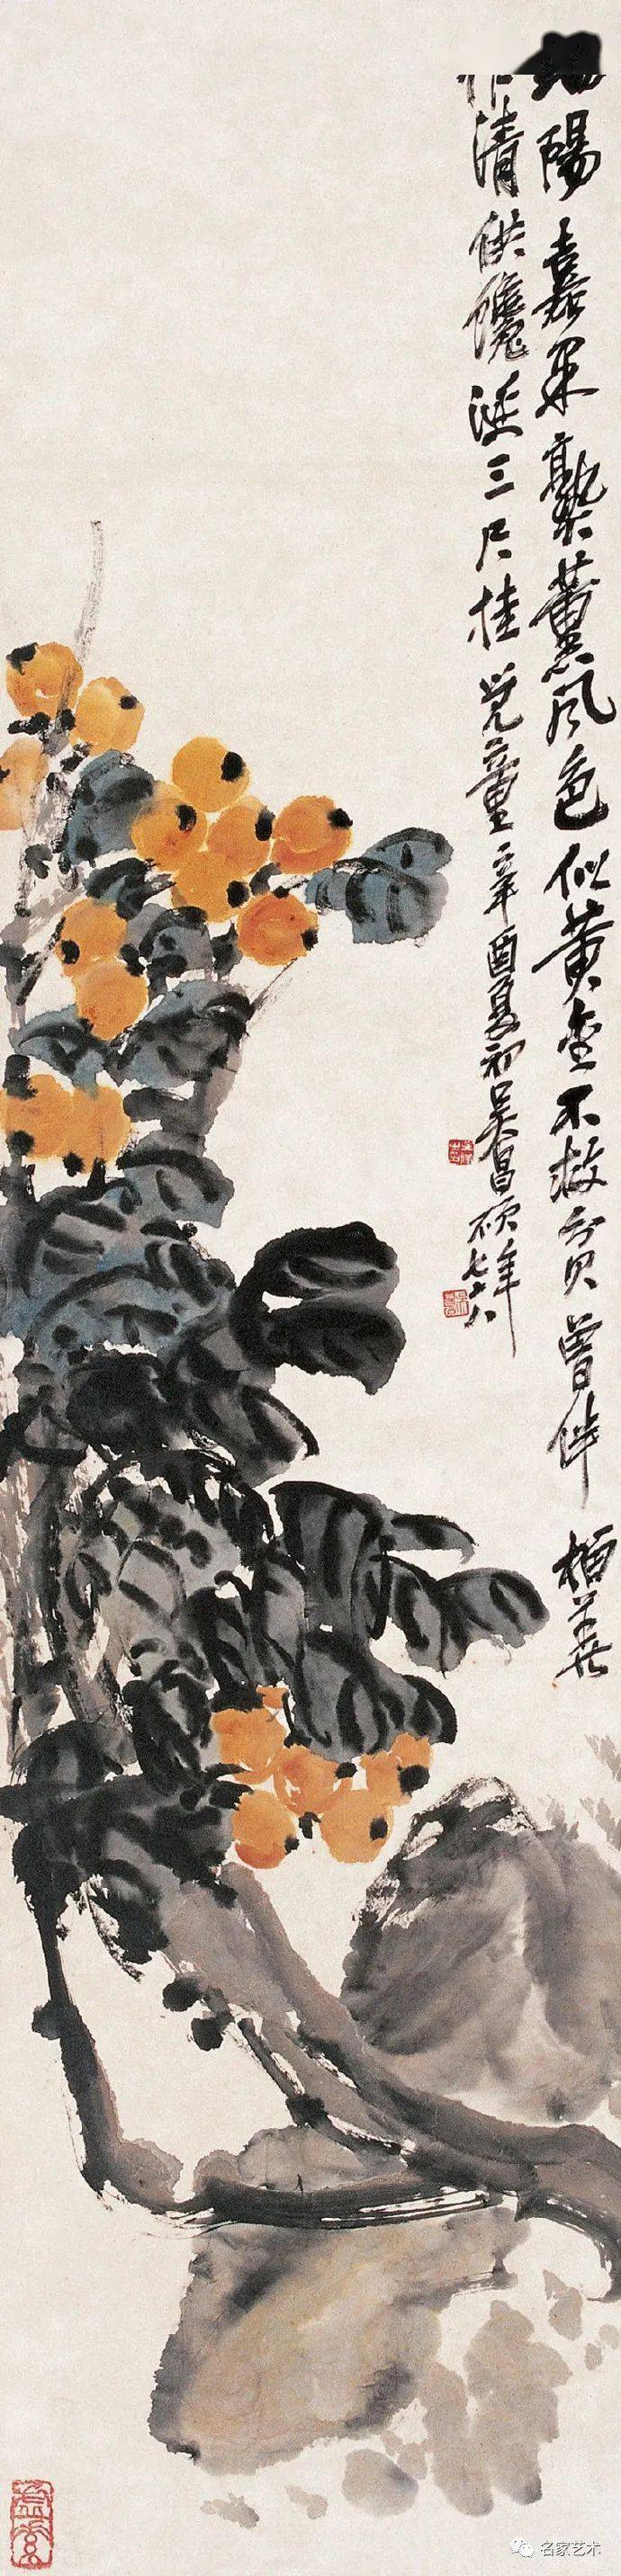 陽嘉果熟薰風色似黃金不救貧曾伴榴華
清供饞涎三尺挂兒童辛酉夏初吳昌碩年七十八
名家艺术